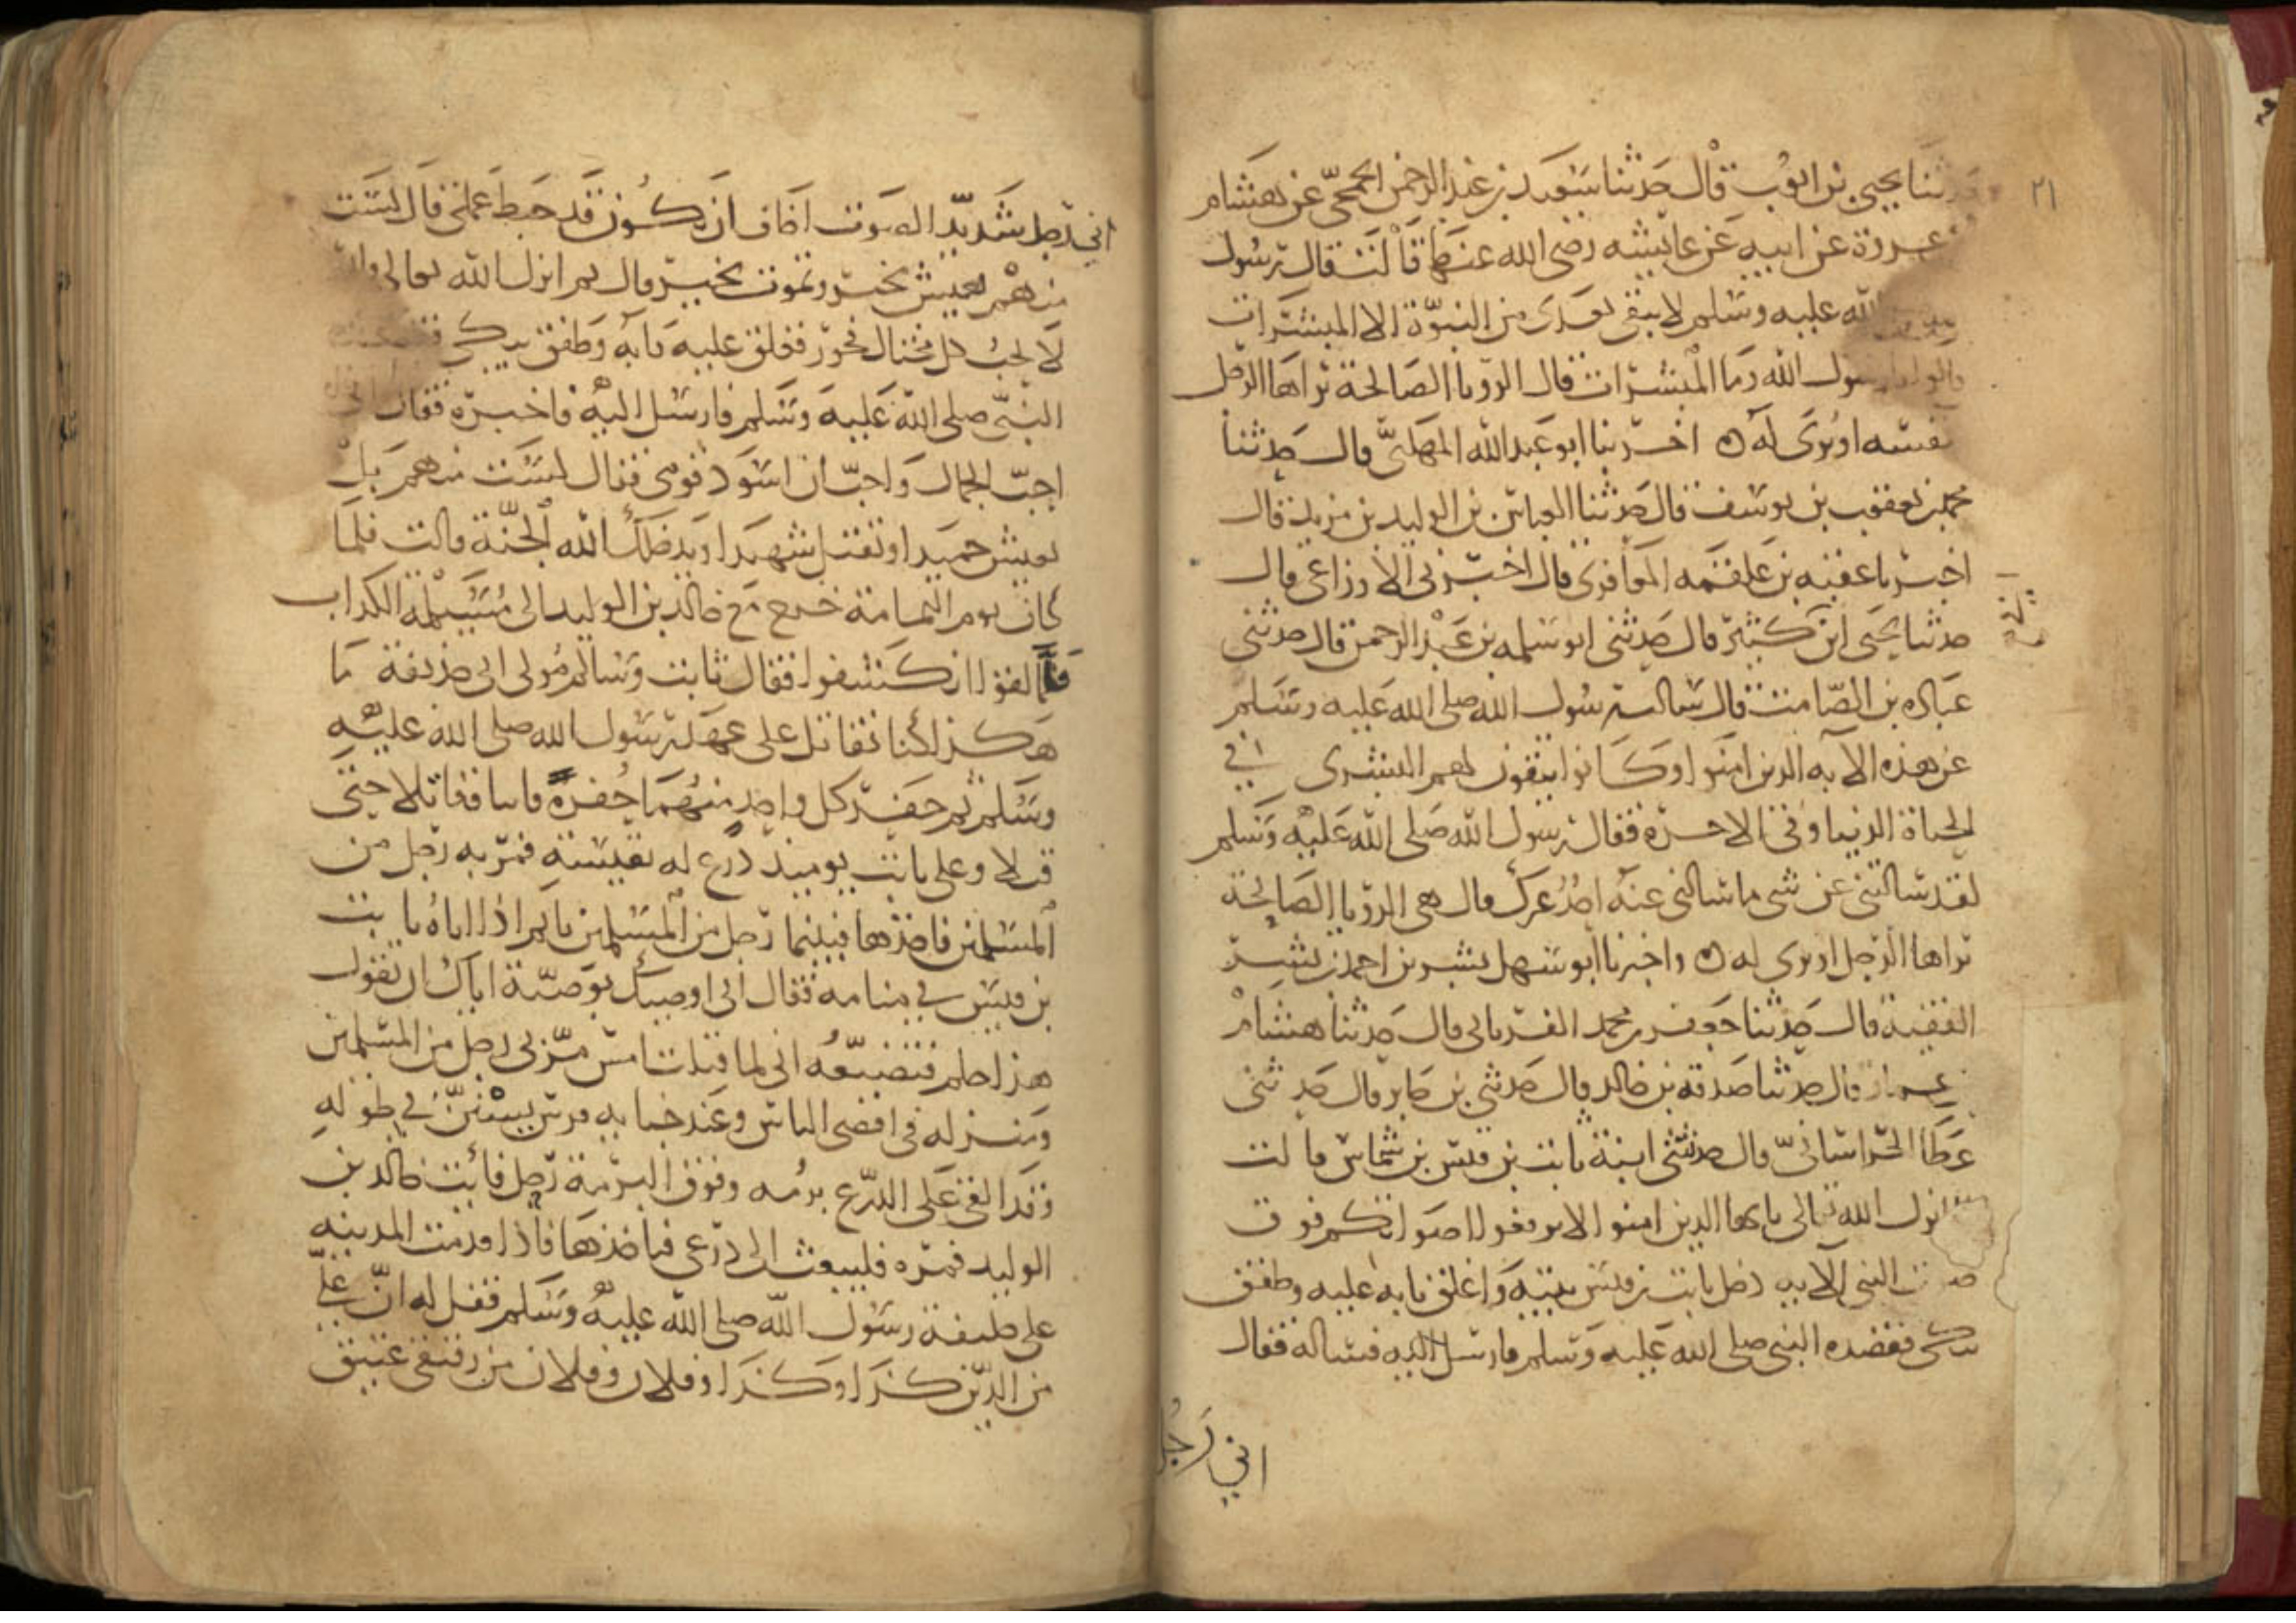 ٢١
حدثنا يحيى بن ايوب قال حدثنا سعيد بن عبد الرحمن الجمحي عن هشام
عروة عن ابيه عن عائشه رضي الله عنها قالت قال رسول
الله عليه وسلم لا يبقى بعدي من النبوة الا المبشرات
قالوا يا رسول الله وما المبشرات قال الرويا الصالحة يراها الرجل
لنفسه او يرى له ه اخبرنا ابو عبد الله المهلبي قال حدثنا
محمد بن يعقوب بن يوسف قال حدثنا العباس بن الوليد بن مزيد قال
اخبرنا عقبه بن علقمه المعافري قال اخبرني الاوزاعي قال
حدثنا يحيى ابن كثير قال حدثني ابو سلمه بن عبد الرحمن قال حدثني
عباده بن الصامت قال سالت رسول الله صلى الله عليه وسلم
عن هذه الايه الذين امنوا وكانوا يتقون لهم البشرى في
الحياة الدنيا وفي الاخرة فقال رسول الله صلى الله عليه وسلم
لقد سالتني عن شي ما سالني عنه احد غيرك قال هي الرويا الصالحة
يراها الرجل او يرى له ه واخبرنا ابو سهل بشر بن احمد بن بشر
الفقيه قال حدثنا جعفر بن محمد الفريابي قال حدثنا هشام
بن عمار قال حدثنا صدقه بن خالد قال حدثني بن جابر قال حدثني
عطا الخراساني قال حدثتني ابنة ثابت بن قيس بن شماس قالت
انزل الله تعالى يا يها الذين امنوا لا ترفعوا اصواتكم فوق
صوت النبي الايه دخل ثابت بن قيس بيته واغلق بابه عليه وطفق
يبكي ففقده النبي صلى الله عليه وسلم فارسل اليه فساله فقال
اني رجل
اني رجل شديد الصوت اخاف ان يكون قد حبط عملي قال لست
منهم تعيش بخير وتموت بخير قال ثم انزل الله تعالى
لا يحب كل مختال فخور فغلق عليه بابه وطفق يبكي
النبي صلى الله عليه وسلم فارسل اليه فاخبره فقال
احب الجمال واحب ان اسود قومي فقال لست منهم بل
تعيش حميدا وتقتل شهيدا ويدخلك الله الجنة قالت فلما
كان يوم اليمامة خرج مع خالد بن الوليد الى مسيلمة الكذاب
فلما لقوا انكشفوا فقال ثابت وسالم مولى ابي حذيفة ما
هكذا كنا نقاتل على عهد رسول الله صلى الله عليه
وسلم ثم حفر كل واحد منهما حفرة فاتيا فقاتلا حتى
قتلا وعلى ثابت يوميذ درع له نفيسة فمر به رجل من
المسلمين فاخذها فبينما رجل من المسلمين نايم اذ اتاه ثابت
بن قيس في منامه فقال اني اوصيك بوصية اياك ان تقول
هذا حلم فتضيعه اني لما قتلت امس مر بي رجل من المسلمين
ومنزله في اقصى الناس وعند خبايه فرس يستن في طوله
وقد الفى على الدرع برمه وفوق البرمة رجل فايت خالد بن
الوليد فمره فليبعث الى درعي فياخذها فاذا قدمت المدينه
على خليفة رسول الله صلى الله عليه وسلم فقل له ان علي
من الدين كذا وكذا وفلان وفلان من رقيقي عتيق